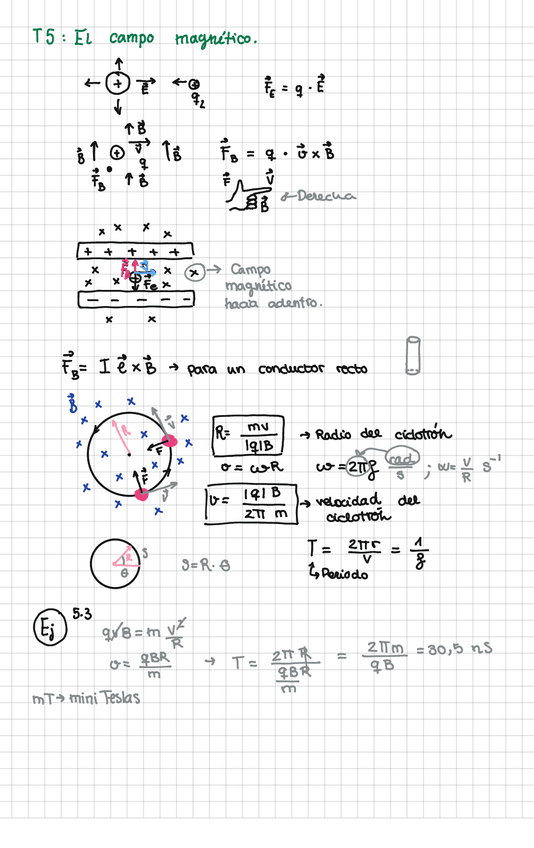 T5: El campo magnético.
+ E⃗ q₂ F⃗_E = q · E⃗
B⃗ B⃗ + v⃗ q B⃗ F⃗_B B⃗
F⃗_B = q · v⃗ x B⃗
F⃗ V⃗ B⃗ Derecha
x x x x
+ + + + +
x x x x x F⃗e
x → Campo
magnético
hacia adentro.
− − − − −
x x
F⃗_B = I ℓ⃗ x B⃗ → para un conductor recto
B⃗ x x x x x x x x x x x x R v⃗ F⃗ F⃗ v⃗
R = mv / |q|B → Radio del ciclotrón
v = ωR ω = 2πf rad/s ; ω = V/R s⁻¹
υ = |q| B / 2π m → velocidad del
ciclotrón
T = 2πr / V = 1/f
↳ Periodo
R S θ S = R · θ
Ej 5.3
qvB = m v²/R
v = qBR / m → T = 2π R / (qBR / m) = 2πm / qB = 30,5 nS
mT → mini Teslas